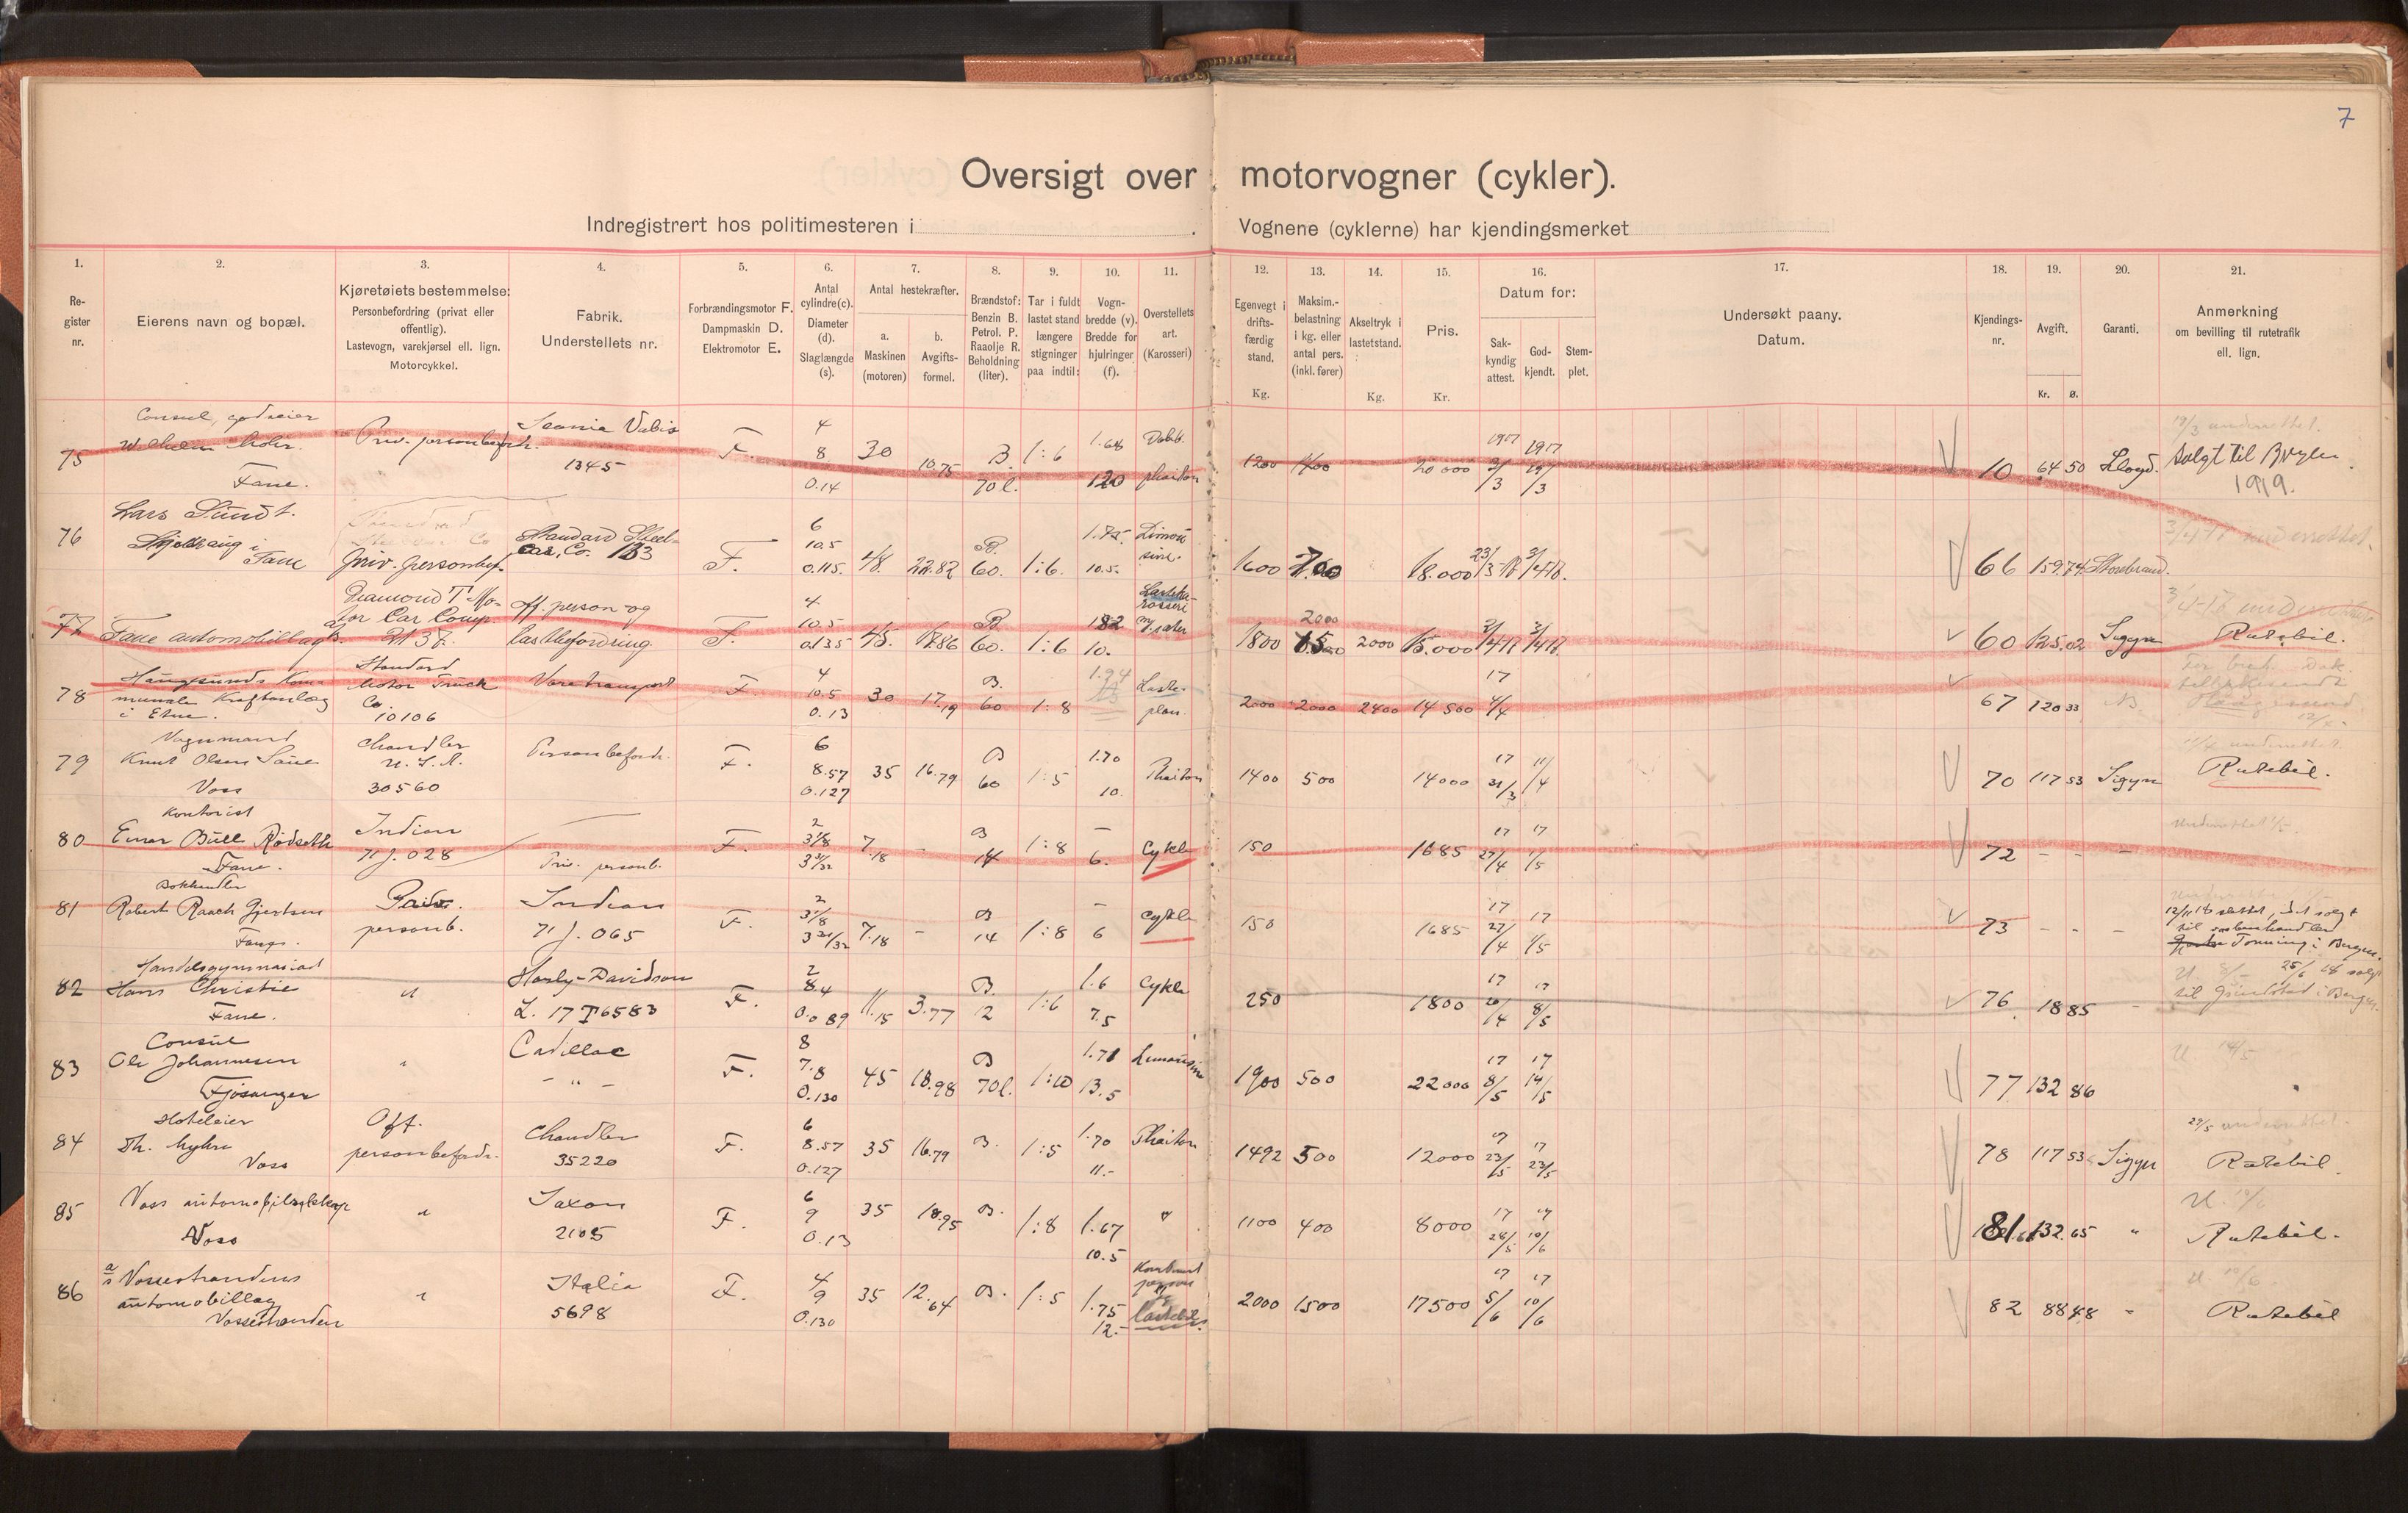 7
Oversigt over motorvogner (cykler).
Indregistrert hos politimesteren i . Vognene (cyklerne) har kjendingsmerket
1. 2. 3. 4. 5. 6. 7. 8. 9. 10. 11. 12. 13. 14. 15. 16. 17. 18. 19. 20. 21.
Re-
gister
nr.
Eierens navn og bopæl.
Kjøretøiets bestemmelse:
Personbefordring (privat eller
offentlig).
Lastevogn, varekjørsel ell. lign.
Motorcykkel.
Fabrik.
Understellets nr.
Forbrændingsmotor F.
Dampmaskin D.
Elektromotor E.
Antal
cylindre(c).
Diameter
(d).
Slaglængde
(s).
Antal hestekræfter.
a.
Maskinen
(motoren)
b.
Avgifts-
formel.
Brændstof:
Benzin B.
Petrol. P.
Raaolje R.
Beholdning
(liter).
Tar i fuldt
lastet stand
længere
stigninger
paa indtil:
Vogn-
bredde (v).
Bredde for
hjulringer
(f).
Overstellets
art.
(Karosseri)
Egenvegt i
drifts-
færdig
stand.
Kg.
Maksim.-
belastning
i kg. eller
antal pers.
(inkl. fører)
Akseltryk i
lastetstand.
Kg.
Pris.
Kr.
Datum for:
Sak-
kyndig
attest.
God-
kjendt.
Stem-
plet.
Undersøkt paany.
Datum.
Kjendings-
nr.
Avgift.
Kr. Ø.
Garanti.
Anmerkning
om bevilling til rutetrafik
ell. lign.
Consul, godseier
75 Wilhelm Mohr. Priv. personbefordr. Scania Vabis F. 4 8 30 B. 1:6 1.64 Dobb.
Fane. 1345 0.14 10.75 70 l. 120 phaiton
1200 20 000 1917 1917 10 64 50 Lloyd. Solgt til Bryn
1919.
76 Lars Sundt. Standard Steel
Car. Co. 183
Fane Priv. personbef. F. 6 10.5 0.115. 48. 22.82 B. 60. 1:6. 1.75. 10.5. Limou
sine.
1600 700 18.000 23/3 17 3/4 17. 66 159.74 Storebrand.
77 Fane automobillag Diamond T Mo-
tor Car Comp.
2137. off. person og
lastbefordring. F. 4 10.5 0.135 45. 17.86 B. 60. 1:6 182 10. Lasteka-
rosseri
m/ sæter
2000
1800 1500 2000 15.000 3/4 17 3/4 17. 60 125.02 Sigyn Rutebil.
78 Haugesunds Kom-
munale Kraftanlæg
i Etne. Standard
Motor Truck
Co.
10106 Varetransport F. 4 10.5 0.13 30 17.19 B. 60 1:8 1.94 Laste-
plan.
2000 2000 2400 14 500 17 67 120 33
79 Vognmand
Knut Olsen
Voss Chandler
U. S. A.
30560 Personbefordr. F. 6 8.57 0.127 35 16.79 B 60 1:5 1.70 10. Phaiton
1400 500 14000 17 31/3 11/4 70 117 53 Sigyn Rutebil.
80 Kontorist
Einar Bull Rødseth
Fane. Indian
71 J. 028 Priv. personb. F. 2 3 1/8 3 31/32 7.18 - B 14 1:8 - 6. Cykle
150 1685 17 27/4 17 1/5 72 - - -
81 Bokhandler
Robert Raach Gjertsen
Fane. Priv.
personb. Indian
71 J. 065 F. 2 3 1/8 3 31/32 7.18 - B 14 1:8 - 6 cykle
150 1685 17 27/4 17 1/5 73 - - - 12/11 18 slettet, idet solgt
til
Tonning i Bergen.
82 Handelsgymnasiast
Hans Christie
Fane. " Harly-Davidson
L. 17 T 6583 F. 2 8.4 0.089 11.15 3.77 B. 12 1:6 1.6 7.5 Cykle
250 1800 17 26/4 17 8/5 76 18 85 - 25/6 18 solgt
til Grindstad i Bergen.
83 Consul
Ole Johannesen
Fjøsanger " Cadillac
- " - F. 8 7.8 0.130 45 18.98 B 70 l. 1:10 1.71 13.5 Limousine
1900 500 22000 17 8/5 17 14/5 77 132 86 U. 14/5
84 Hoteleier
Th. Myhre
Voss Off.
personbefordr. Chandler
35220 F. 6 8.57 0.127 35 16.79 B. 1:5 1.70 11.- Phaiton
1492 500 12000 17 23/5 17 23/5 78 117 53 Sigyn Rutebil.
85 Voss automobilselskap
Voss " Saxon
2105 F. 6 9 0.13 35 18.95 B. 1:8 1.67 10.5 "
1100 400 8000 17 28/5 17 10/6 81 132.65 " Rutebil.
86 a/s Vossestrandens
automobillag
Vossestranden " Italia
5698 F. 4 9 0.130 35 12.64 B. 1:5 1.75 12.- Kombinert
person
og
lastebil.
2000 1500 17500 17 5/6 17 10/6 82 88 48 " U. 10/6
Rutebil